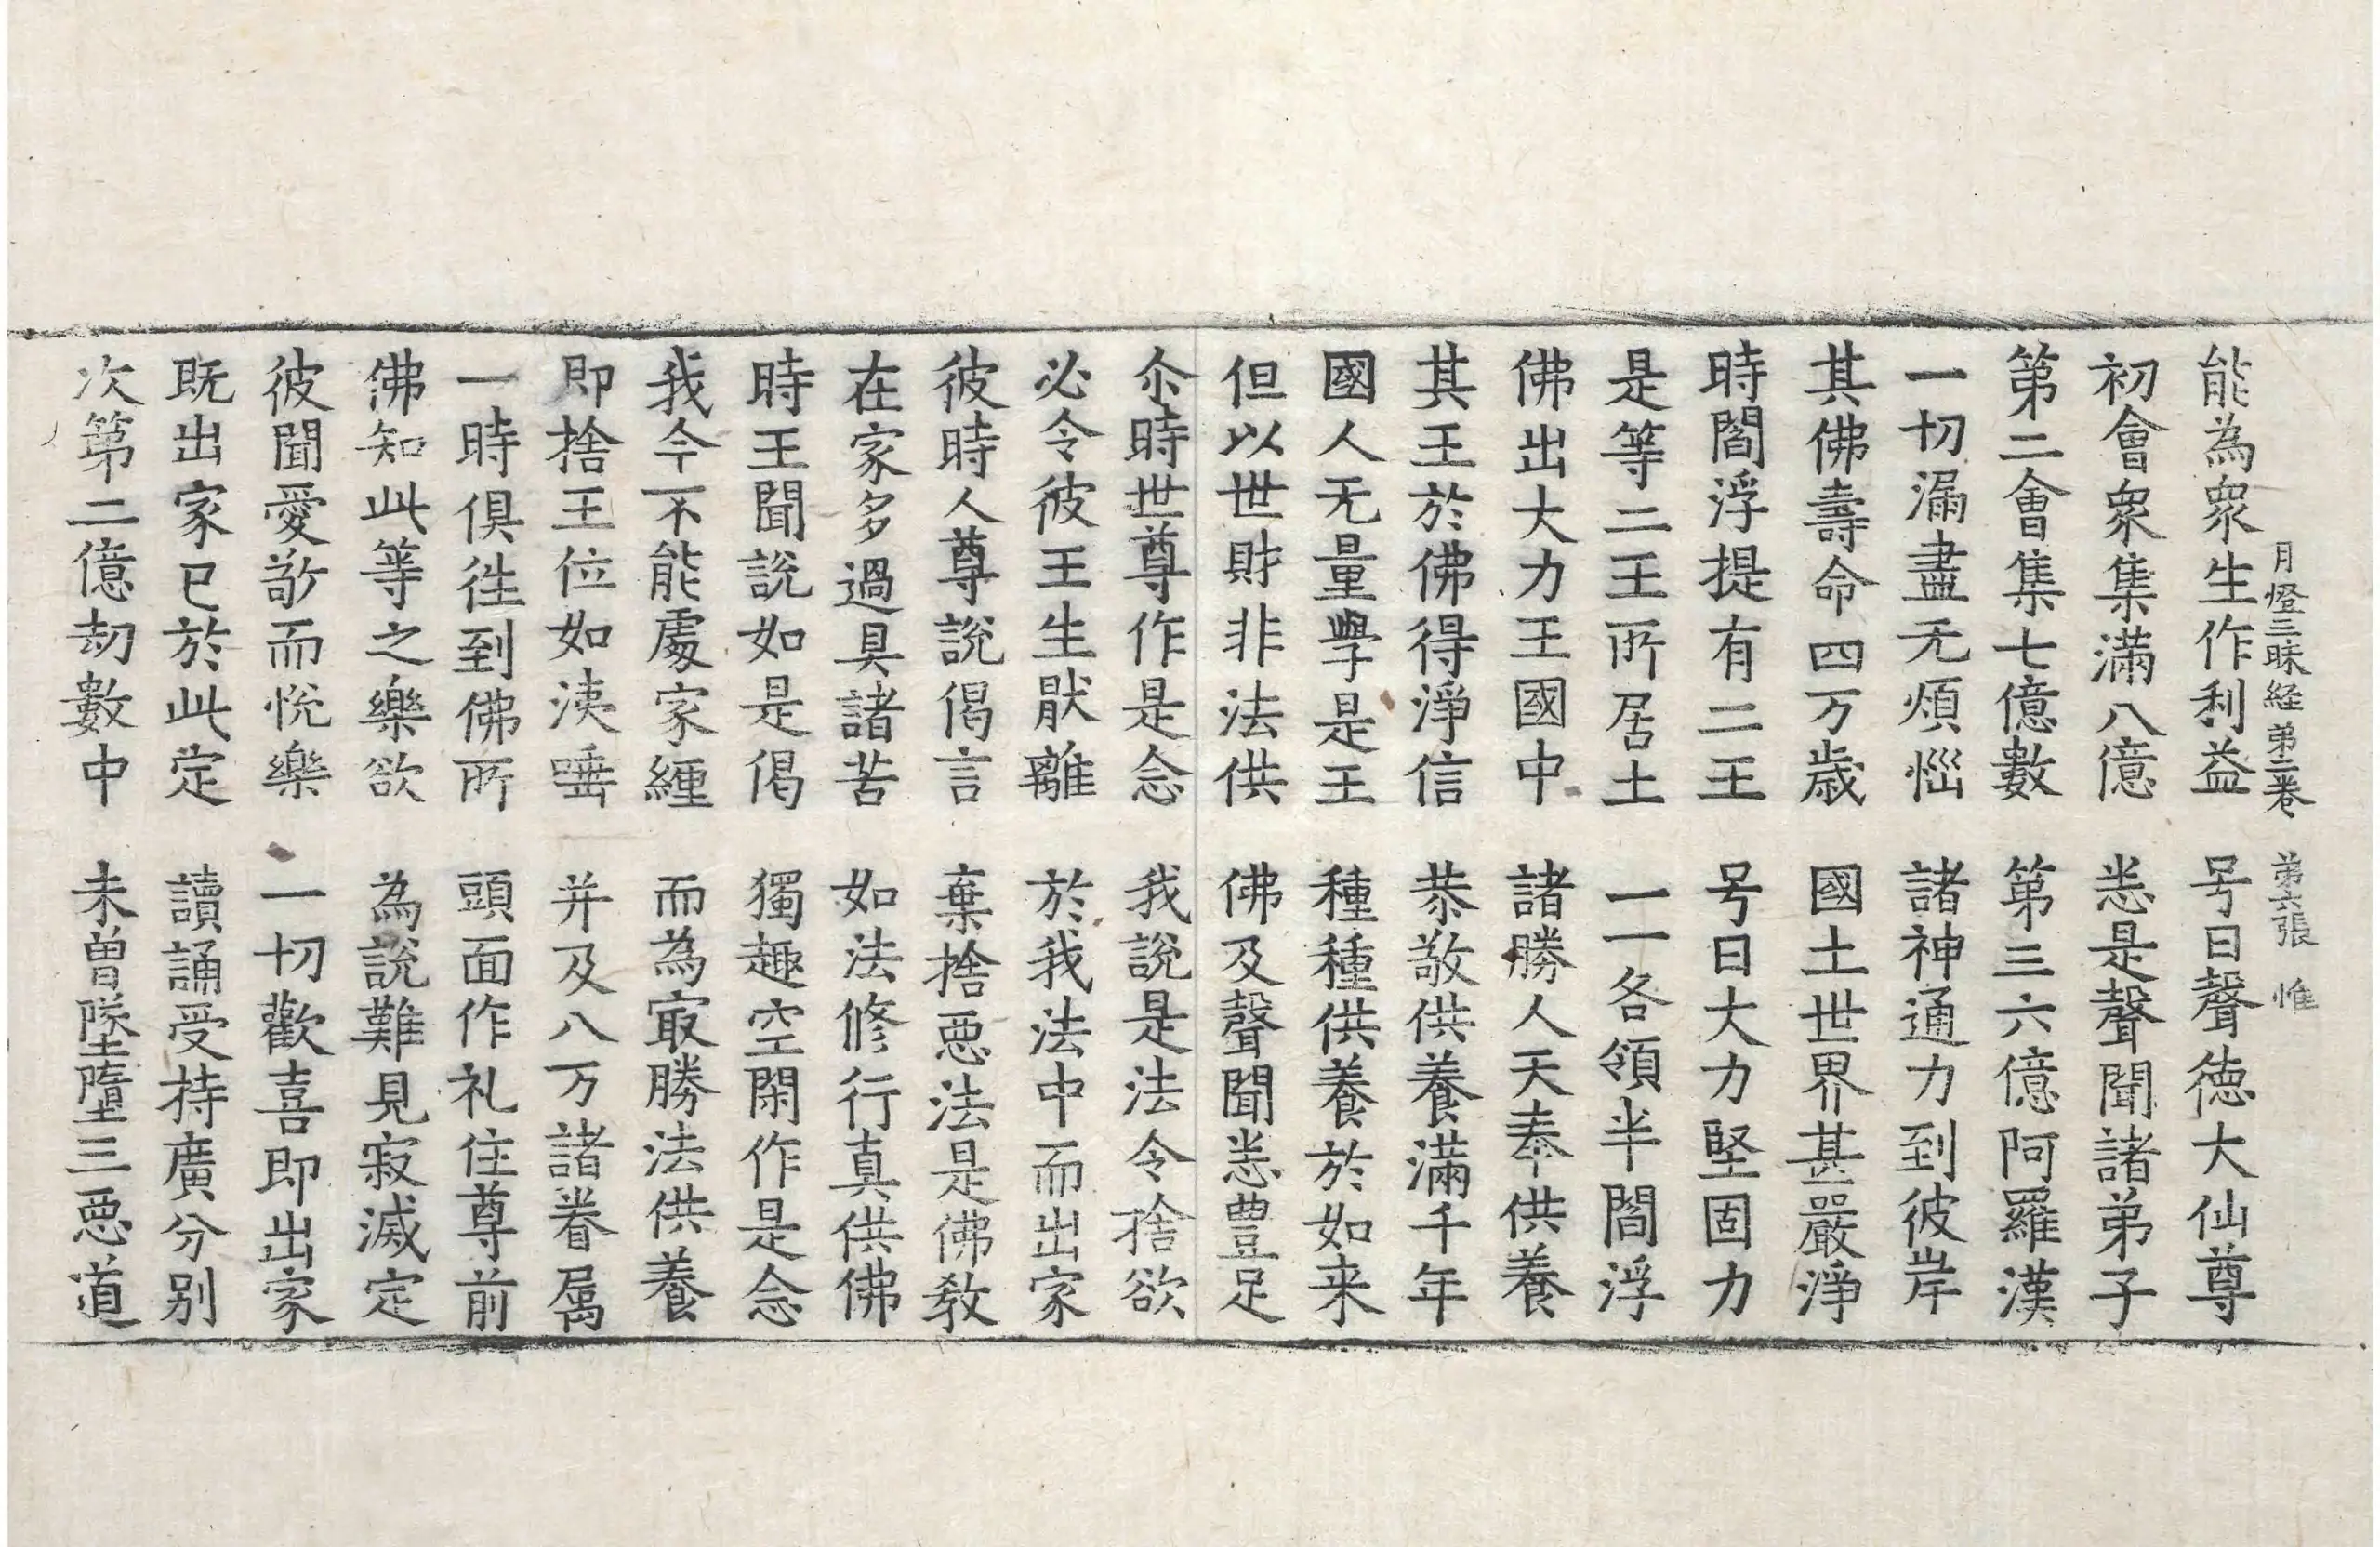 月燈三昧経第二卷 第六張 惟
能為衆生作利益 号曰聲徳大仙尊
初會衆集滿八億 悉是聲聞諸弟子
第二會集七億數 第三六億阿羅漢
一切漏盡无煩惱 諸神通力到彼岸
其佛壽命四万歳 國土世界甚嚴淨
時閻浮提有二王 号曰大力堅固力
是等二王所居土 一一各領半閻浮
佛出大力王國中 諸勝人天奉供養
其王於佛得淨信 恭敬供養滿千年
國人无量學是王 種種供養於如来
但以世財非法供 佛及聲聞悉豊足
尒時世尊作是念 我說是法令捨欲
必令彼王生猒離 於我法中而出家
彼時人尊說偈言 棄捨惡法是佛教
在家多過具諸苦 如法修行真供佛
時王聞說如是偈 獨趣空閑作是念
我今不能處家纏 而為㝡勝法供養
即捨王位如洟唾 并及八万諸眷属
一時俱往到佛所 頭面作礼住尊前
佛知此等之樂欲 為說難見寂滅定
彼聞愛敬而悅樂 一切歡喜即出家
既出家已於此定 讀誦受持廣分別
次第二億劫數中 未曽墜墮三惡道